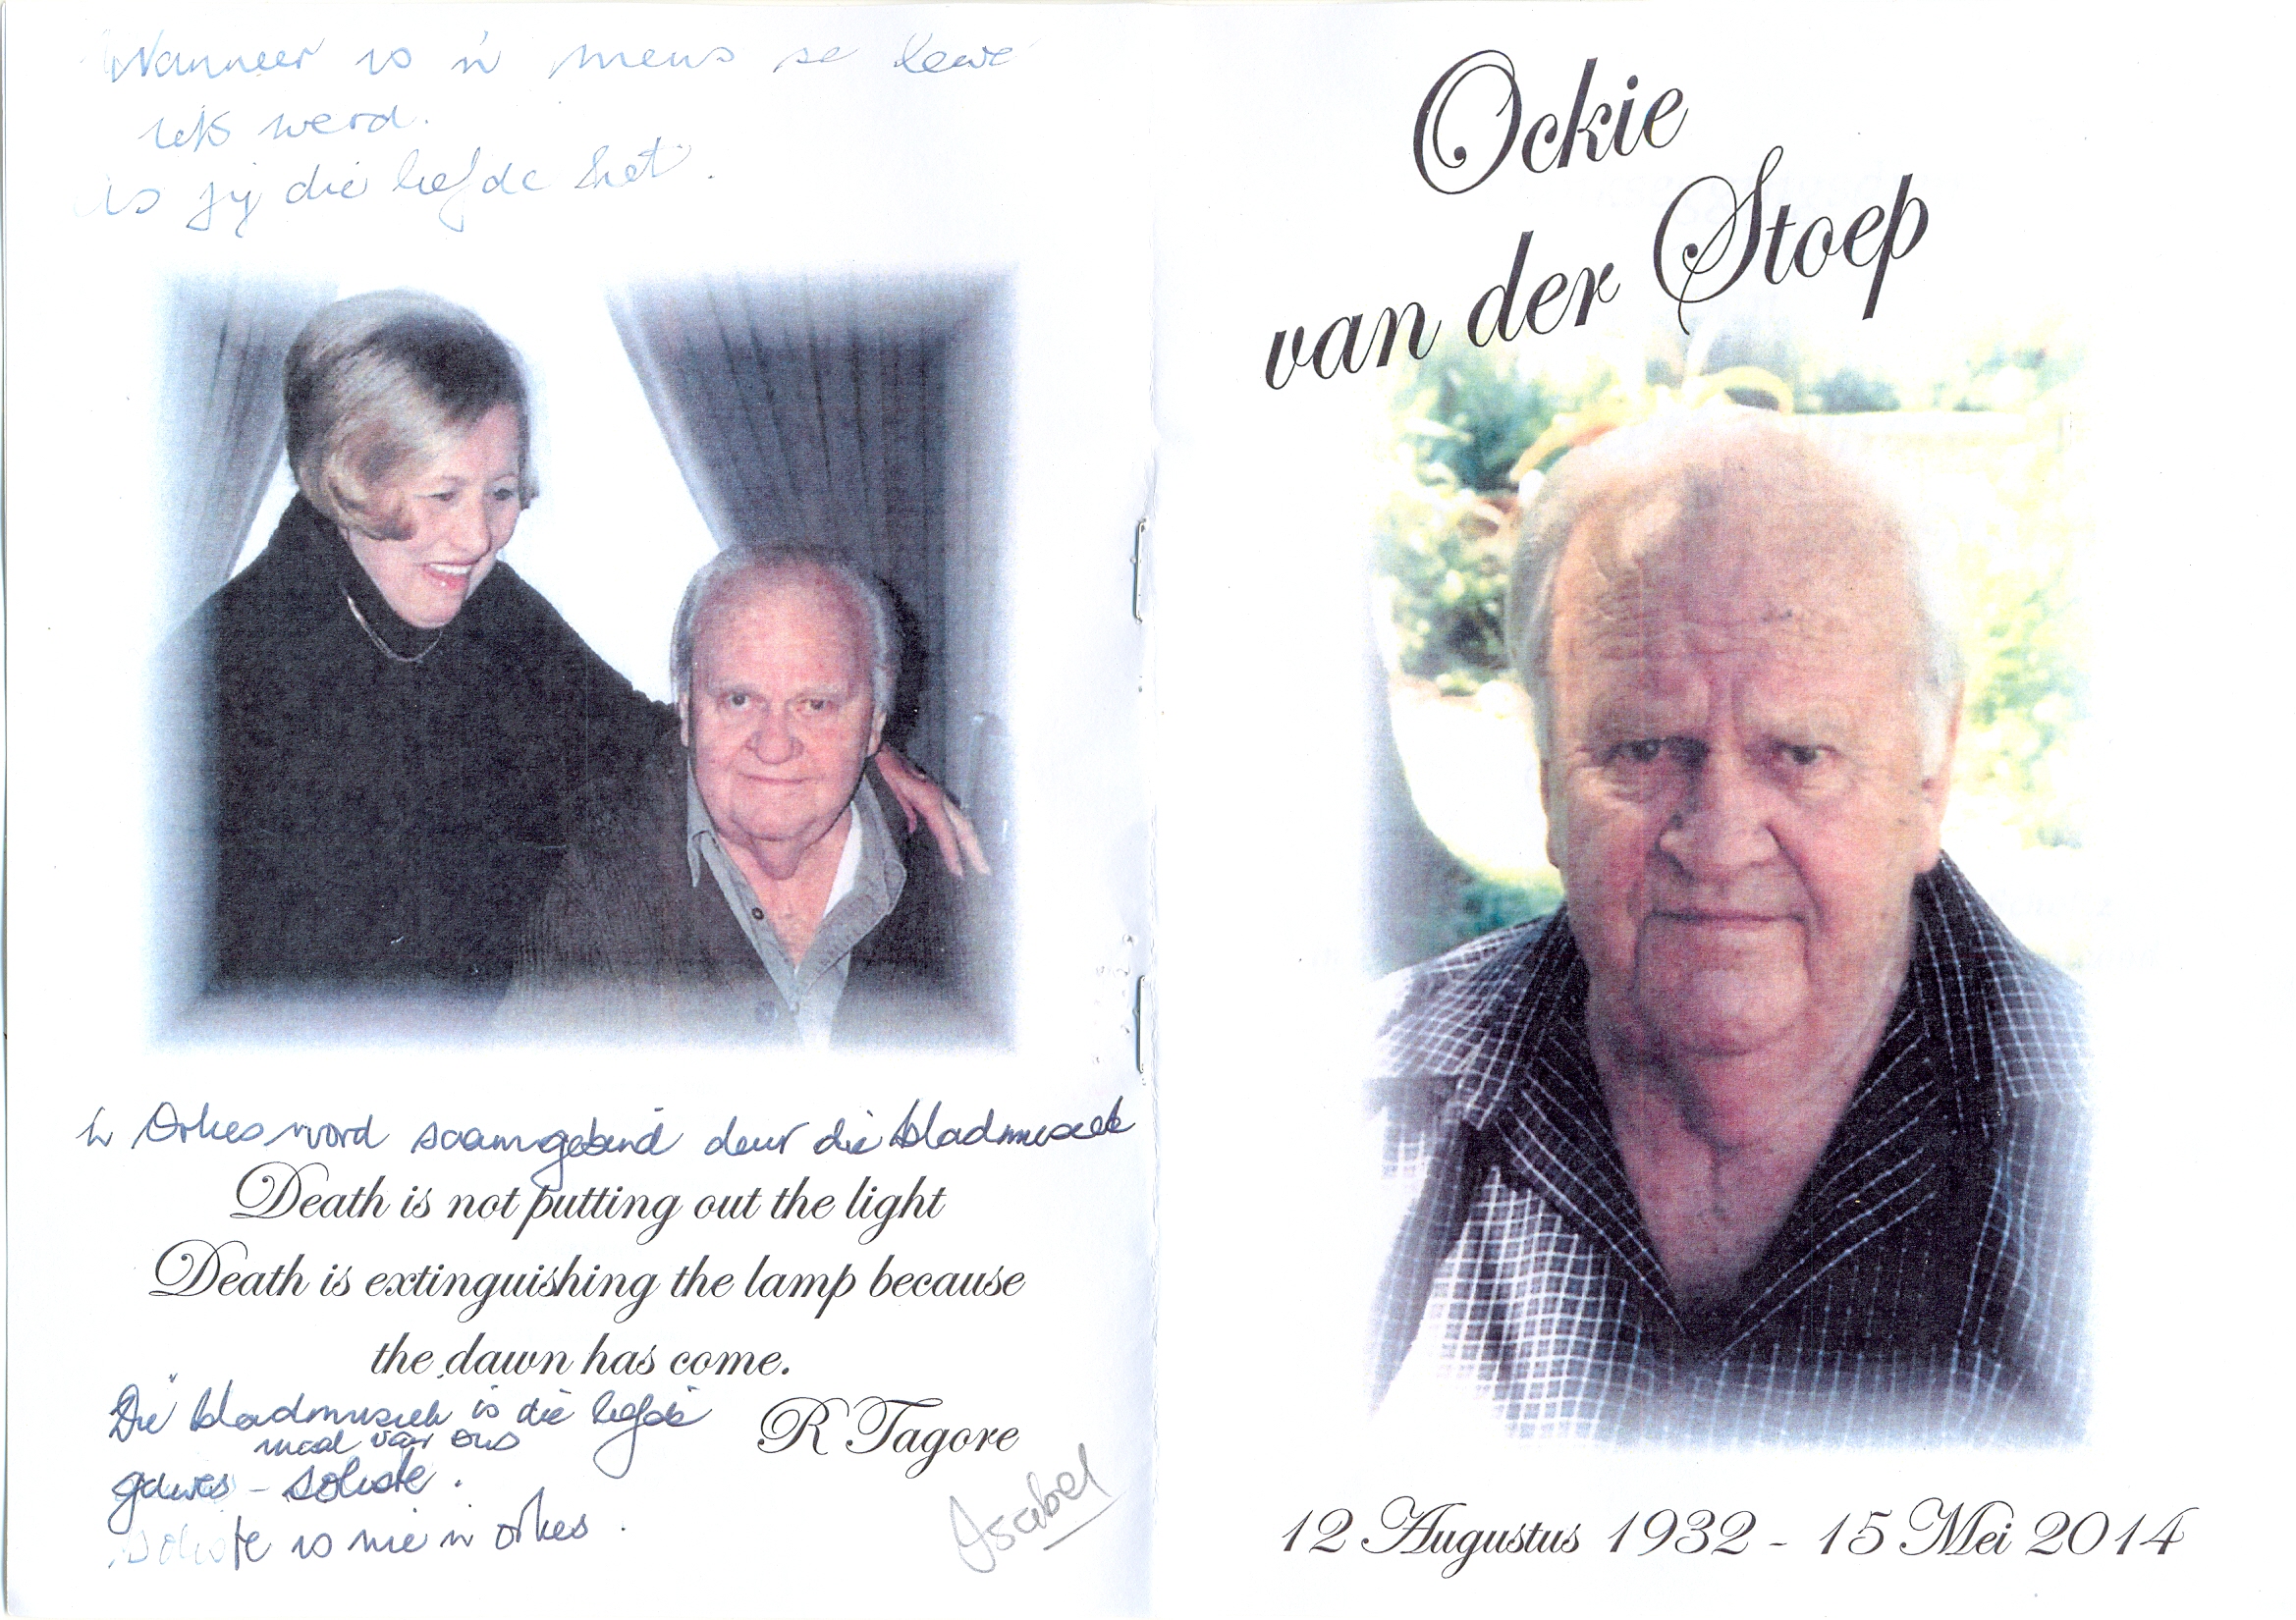 Wanneer is 'n mens se lewe
iets werd.
As jy die liefde het.
'n Orkes word saamgebind deur die bladmusiek
Death is not putting out the light
Death is extinguishing the lamp because
the dawn has come.
R Tagore
Die bladmusiek is die liefde
maal van ons
gawes - soliste.
Soliste is nie 'n orkes.
Isabel
Ockie
van der Stoep
12 Augustus 1932 - 15 Mei 2014